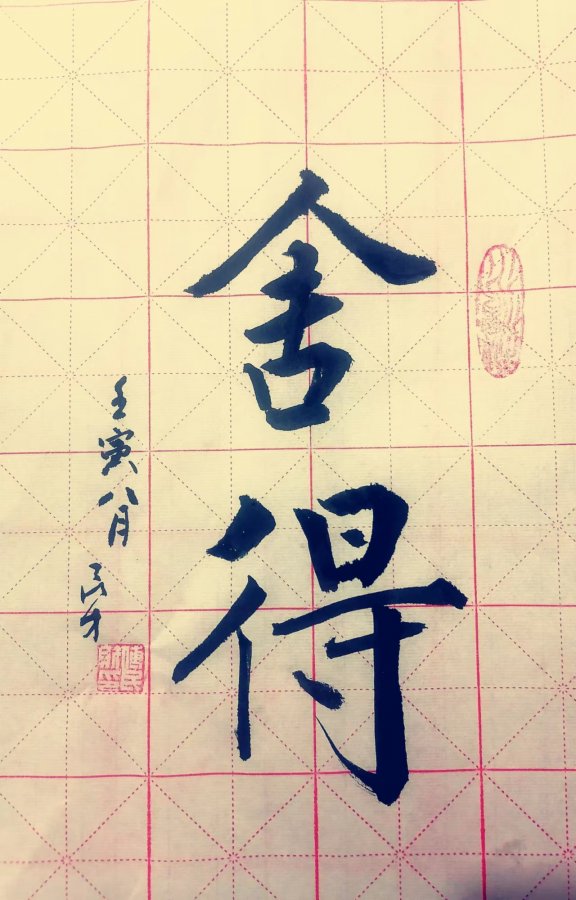 舍得
壬寅八月